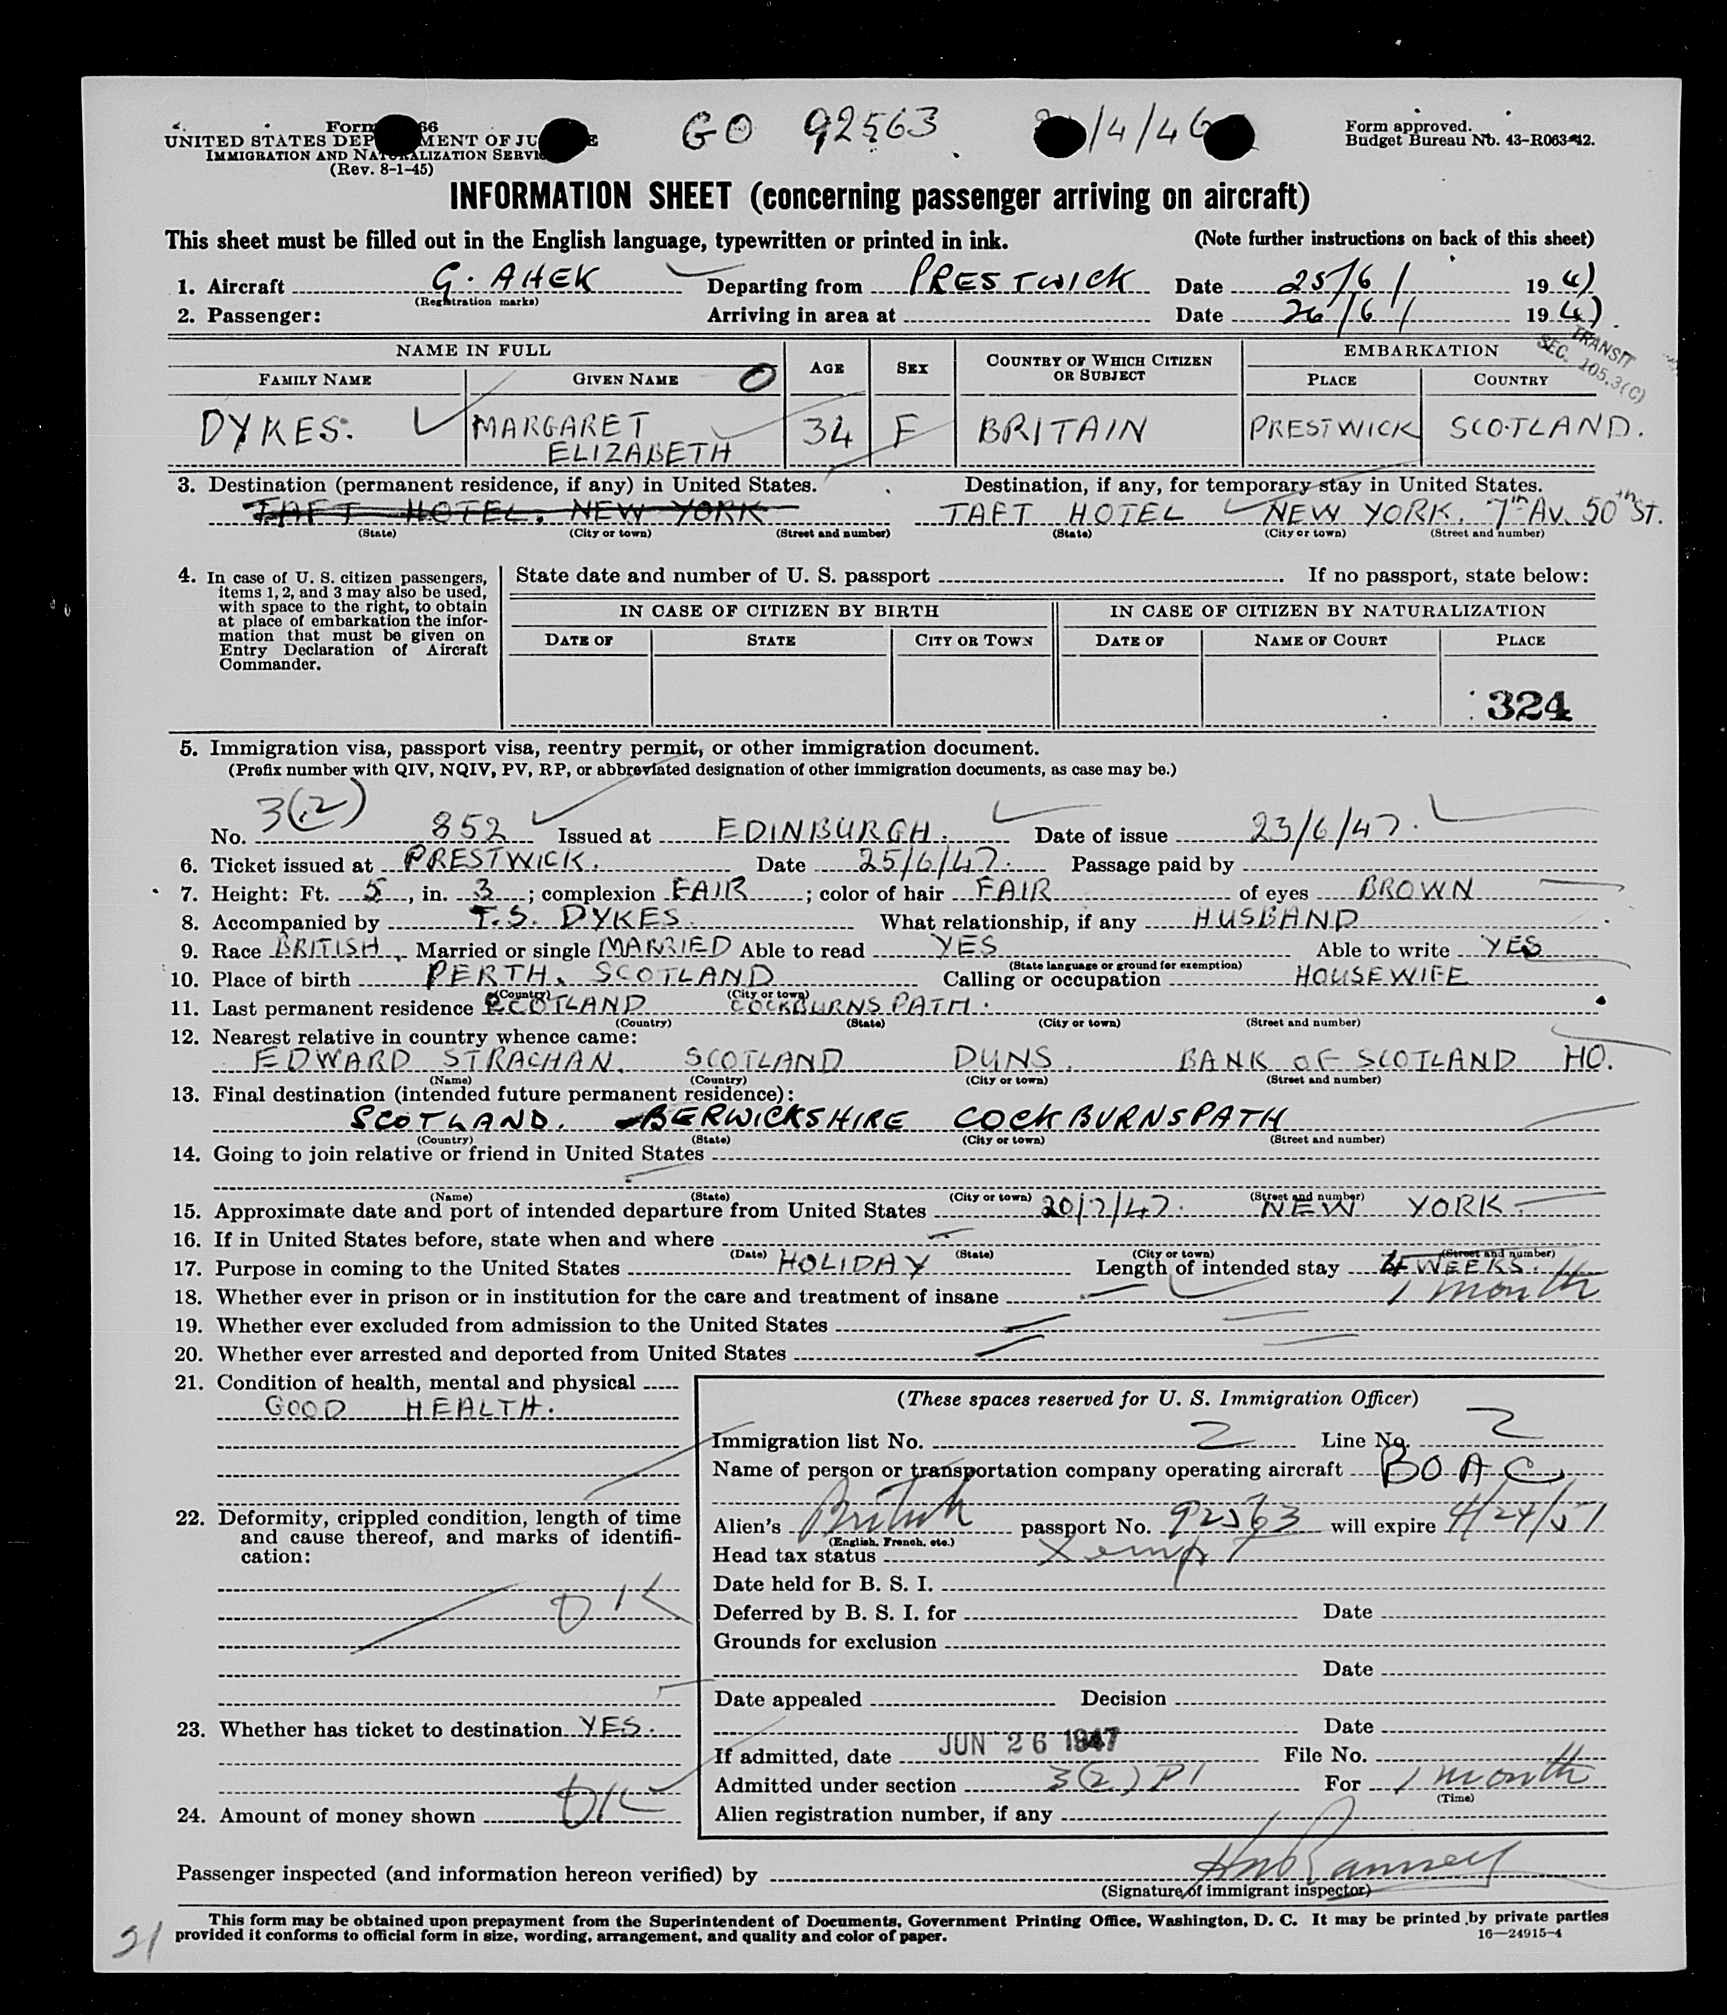 GO 92563 /4/46
Form 66
UNITED STATES DEP MENT OF JU E
IMMIGRATION AND NATURALIZATION SERVI
(Rev. 8-1-45)
Form approved.
Budget Bureau No. 43-R063-42.
INFORMATION SHEET (concerning passenger arriving on aircraft)
This sheet must be filled out in the English language, typewritten or printed in ink. (Note further instructions on back of this sheet)
1. Aircraft G. AHEK Departing from PRESTWICK Date 25/6/ 1947
(Registration marks)
2. Passenger: Arriving in area at Date 26/6/ 1947.
TRANSIT
SEC. 105.3(C)
NAME IN FULL AGE SEX COUNTRY OF WHICH CITIZEN OR SUBJECT EMBARKATION
FAMILY NAME GIVEN NAME PLACE COUNTRY
DYKES. MARGARET ELIZABETH 34 F BRITAIN PRESTWICK SCOTLAND.
3. Destination (permanent residence, if any) in United States. Destination, if any, for temporary stay in United States.
TAFT HOTEL. NEW YORK TAFT HOTEL NEW YORK. 7th AV. 50th ST.
(State) (City or town) (Street and number) (State) (City or town) (Street and number)
4. In case of U. S. citizen passengers, items 1, 2, and 3 may also be used, with space to the right, to obtain at place of embarkation the information that must be given on Entry Declaration of Aircraft Commander.
State date and number of U. S. passport If no passport, state below:
IN CASE OF CITIZEN BY BIRTH IN CASE OF CITIZEN BY NATURALIZATION
DATE OF STATE CITY OR TOWN DATE OF NAME OF COURT PLACE
324
5. Immigration visa, passport visa, reentry permit, or other immigration document.
(Prefix number with QIV, NQIV, PV, RP, or abbreviated designation of other immigration documents, as case may be.)
3(2)
No. 852 Issued at EDINBURGH. Date of issue 23/6/47.
6. Ticket issued at PRESTWICK. Date 25/6/47. Passage paid by
7. Height: Ft. 5, in. 3; complexion FAIR; color of hair FAIR of eyes BROWN
8. Accompanied by T.S. DYKES. What relationship, if any HUSBAND
9. Race BRITISH, Married or single MARRIED Able to read YES Able to write YES
(State language or ground for exemption)
10. Place of birth PERTH, SCOTLAND Calling or occupation HOUSEWIFE
(Country) (City or town)
11. Last permanent residence SCOTLAND COCKBURNSPATH.
(Country) (State) (City or town) (Street and number)
12. Nearest relative in country whence came:
EDWARD STRACHAN. SCOTLAND DUNS. BANK OF SCOTLAND HO.
(Name) (Country) (City or town) (Street and number)
13. Final destination (intended future permanent residence):
SCOTLAND. BERWICKSHIRE COCKBURNSPATH
(Country) (State) (City or town) (Street and number)
14. Going to join relative or friend in United States
(Name) (State) (City or town) (Street and number)
15. Approximate date and port of intended departure from United States 20/7/47. NEW YORK.
16. If in United States before, state when and where
(Date) (State) (City or town) (Street and number)
17. Purpose in coming to the United States HOLIDAY Length of intended stay 4 WEEKS.
1 month
18. Whether ever in prison or in institution for the care and treatment of insane
19. Whether ever excluded from admission to the United States
20. Whether ever arrested and deported from United States
21. Condition of health, mental and physical
GOOD HEALTH.
22. Deformity, crippled condition, length of time and cause thereof, and marks of identification:
OK
23. Whether has ticket to destination YES.
24. Amount of money shown OK
(These spaces reserved for U. S. Immigration Officer)
Immigration list No. 2 Line No. 2
Name of person or transportation company operating aircraft BOAC
Alien's British passport No. 92563 will expire 4/24/51
(English, French, etc.)
Head tax status Xempt
Date held for B. S. I.
Deferred by B. S. I. for Date
Grounds for exclusion
Date
Date appealed Decision
Date
If admitted, date JUN 26 1947 File No.
Admitted under section 3(2) P1 For 1 month
(Time)
Alien registration number, if any
Passenger inspected (and information hereon verified) by
(Signature of immigrant inspector)
This form may be obtained upon prepayment from the Superintendent of Documents, Government Printing Office, Washington, D. C. It may be printed by private parties
provided it conforms to official form in size, wording, arrangement, and quality and color of paper. 16—24915-4
21